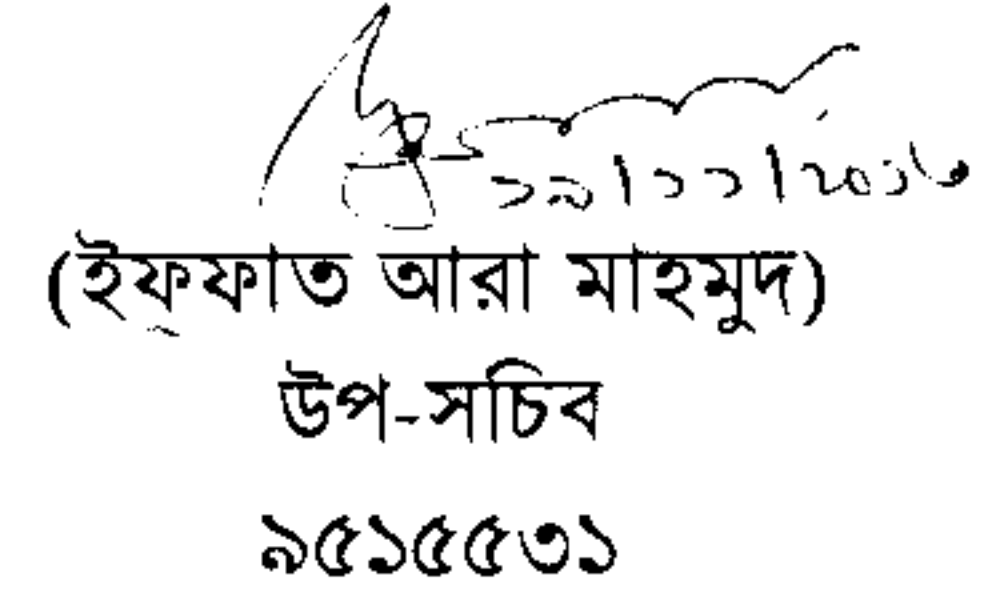 ২৯|১১|২০১৬
(ইফ্ফাত আরা মাহমুদ)
উপ-সচিব
৯৫১৫৫৩১